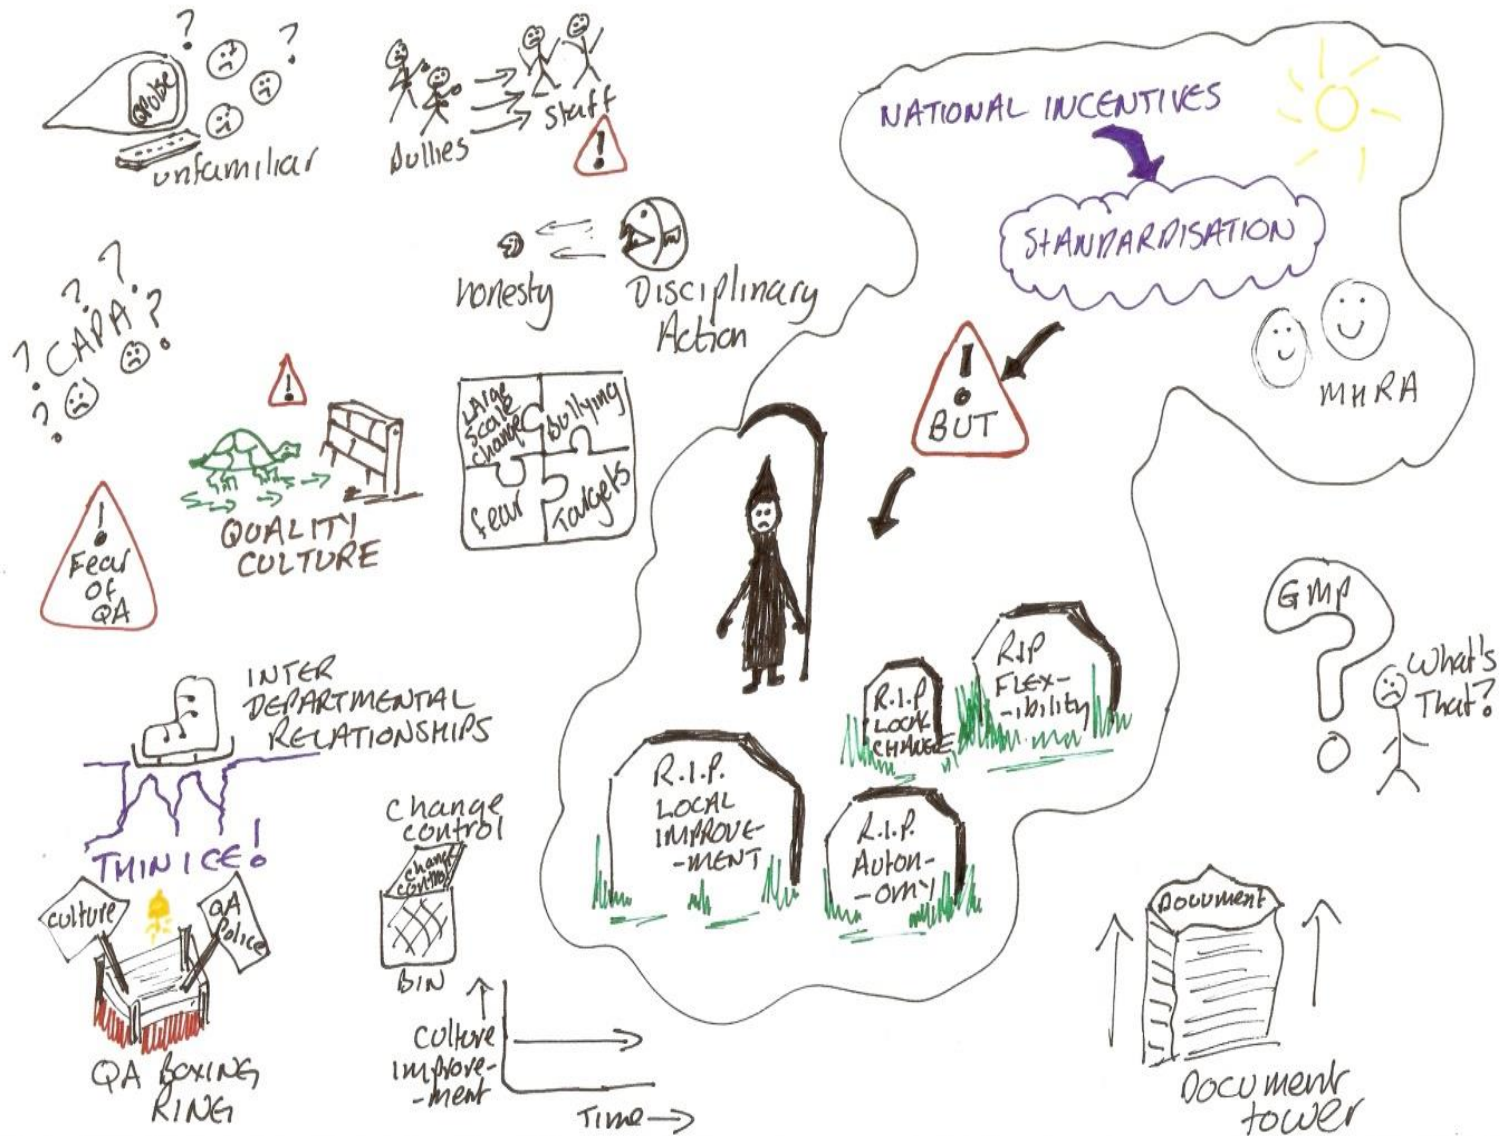 ?
?
QPulse
unfamiliar
Bullies
Staff
!
NATIONAL INCENTIVES
STANDARDISATION
honesty
Disciplinary
Action
? ? ?
? CAPA ?
?
!
!
BUT
MHRA
LARGE
Scale
change
Bullying
fear
Targets
QUALITY
CULTURE
!
Fear
OF
QA
GMP
?
What's
That?
INTER
DEPARTMENTAL
RELATIONSHIPS
THIN ICE!
R.I.P
FLEX-
-ibility
R.I.P
LOCAL
CHANGE
R.I.P.
LOCAL
IMPROVE-
-MENT
R.I.P.
Auton-
-omy
Change
control
Change
control
BIN
culture
QA
Police
QA BOXING
RING
Culture
improve-
-ment
Time
DOCUMENT
Document
tower